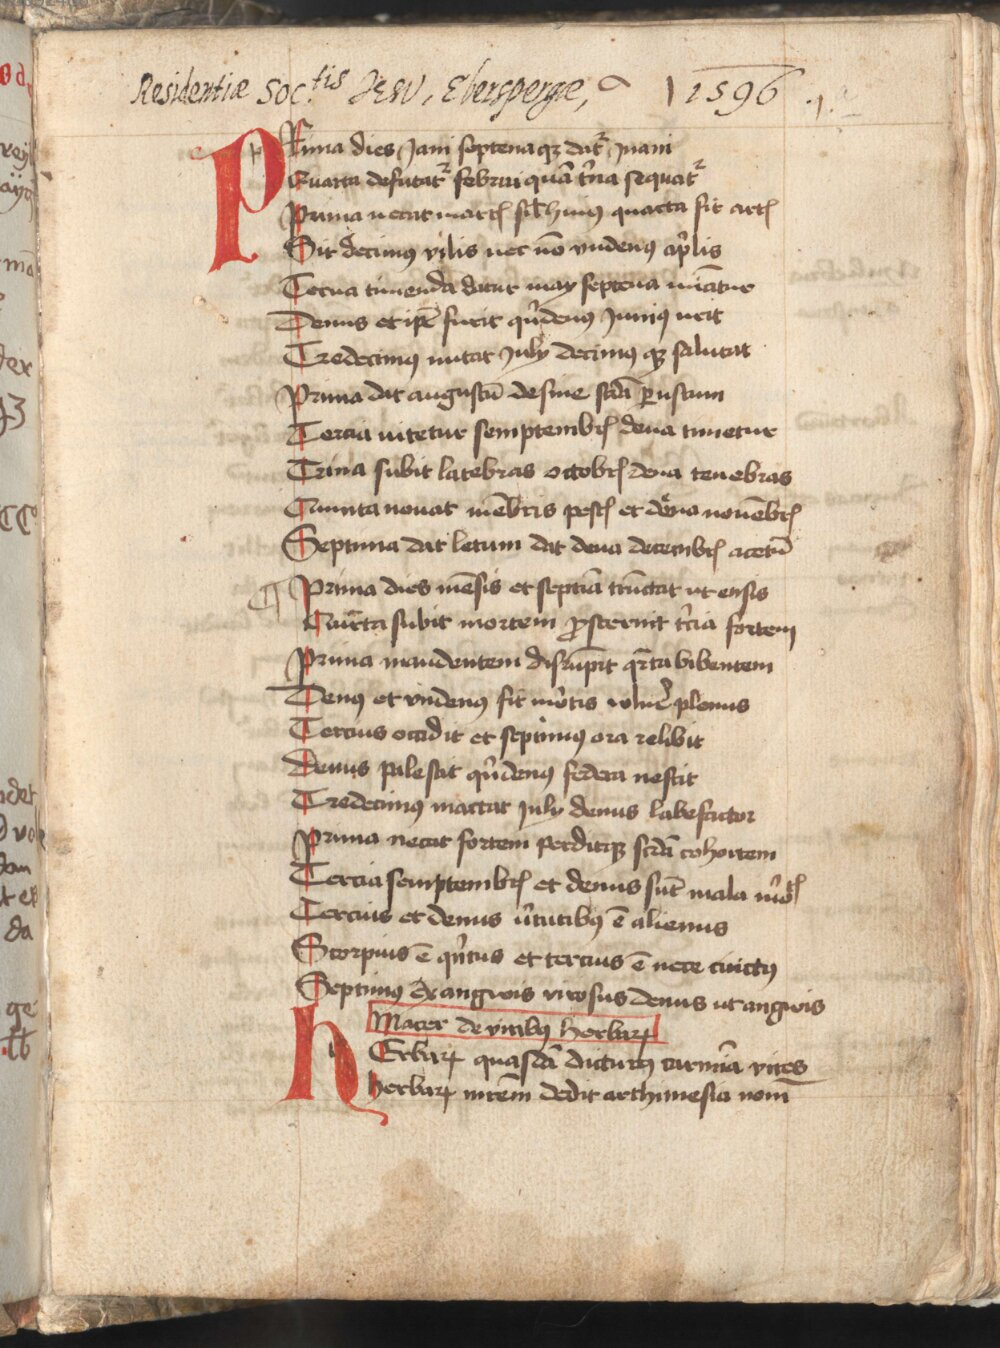 Residentiæ Soc.tis Jesu, Eberspergæ, 1596
PRima dies Jani septenaqꝫ datᷣ Jnani
Quarta defutatᷣ februi quā tīna sequatᷣ
Prima necat martꝭ quarta sit artꝭ
Sit decimꝯ vilis nec nō vndenꝯ ap̄lis
Tercia timenda datur may septena
Denus et ip̄e furit qīdenꝯ Juniꝯ urit
Tredecimꝯ mitat July decimꝯ qꝫ salutat
Prima dat augustū desine scd̄a ꝑustum
Tercia vitetur semptembrꝭ dena timetur
Trina subit latebras octobrꝭ dena tenebras
Quinta novat mēbris pestꝭ et dena nouēbrꝭ
Septima dat letum dat dena decembrꝭ acetū
Prima dies mēsis et septīa trūcat ut ensis
Quarta subit mortem ꝓsternit t̄cia fortem
Prima mandentem disrūpit q̄rta bibentem
Denꝯ et vndenꝯ fit mōrtis vulnē plenus
Tercius occidit et septimꝯ ora relibit
Denus palescit qīdenꝯ federa nescit
Tredecimꝯ mactat July denus labefactat
Prima necat fortem perditqꝫ scd̄a cohortem
Tercia semptembrꝭ et denus sūt mala mēbrꝭ
Tercius et denus v̄tutibꝯ ē alienus
Scorpius ē qīntus et tercius ē nece cinctꝯ
Septimꝯ exangwis virosus denus ut angwis
Macer de viribꝯ herbaꝝ
HErbaꝝ quasdā dicturꝯ carmīa vires
herbaꝝ mr̄em dedit arthimesia nom̄